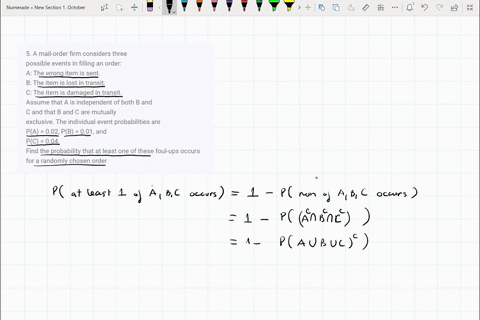 Numerade » New Section 1. October
5. A mail-order firm considers three
possible events in filling an order:
A: The wrong item is sent.
B: The item is lost in transit.
C: The item is damaged in transit.
Assume that A is independent of both B and
C and that B and C are mutually
exclusive. The individual event probabilities are
P(A) = 0.02, P(B) = 0.01, and
P(C) = 0.04.
Find the probability that at least one of these foul-ups occurs
for a randomly chosen order
P( at least 1 of A, B, C occurs) = 1 - P( non of A, B, C occurs)
= 1 - P( (A^c ∩ B^c ∩ C^c) )
= 1 - P( A ∪ B ∪ C)^c )